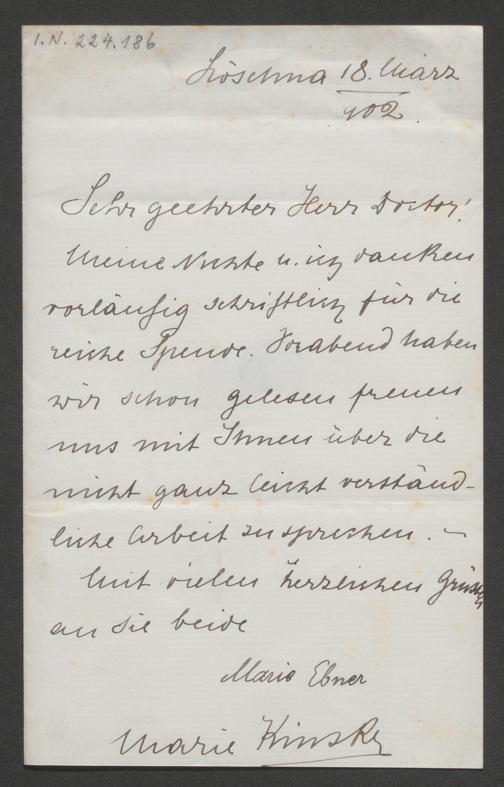 I.N. 224.186
Löschna 18. März
902.
Sehr geehrter Herr Doctor!
Meine Nichte u. ich danken
vorläufig schriftlich für die
reiche Spende. Vorabend haben
wir schon gelesen freuen
uns mit Ihnen über die
nicht ganz leicht verständ-
liche Arbeit zu sprechen. –
Mit vielen herzlichen Grüssen
an Sie beide
Marie Ebner
Marie Kinsky